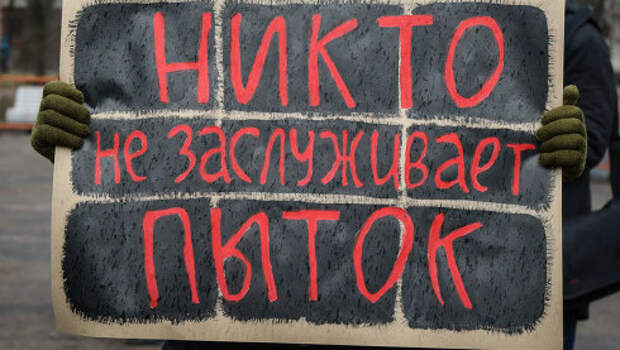 НИКТО
не заслуживает
ПЫТОК